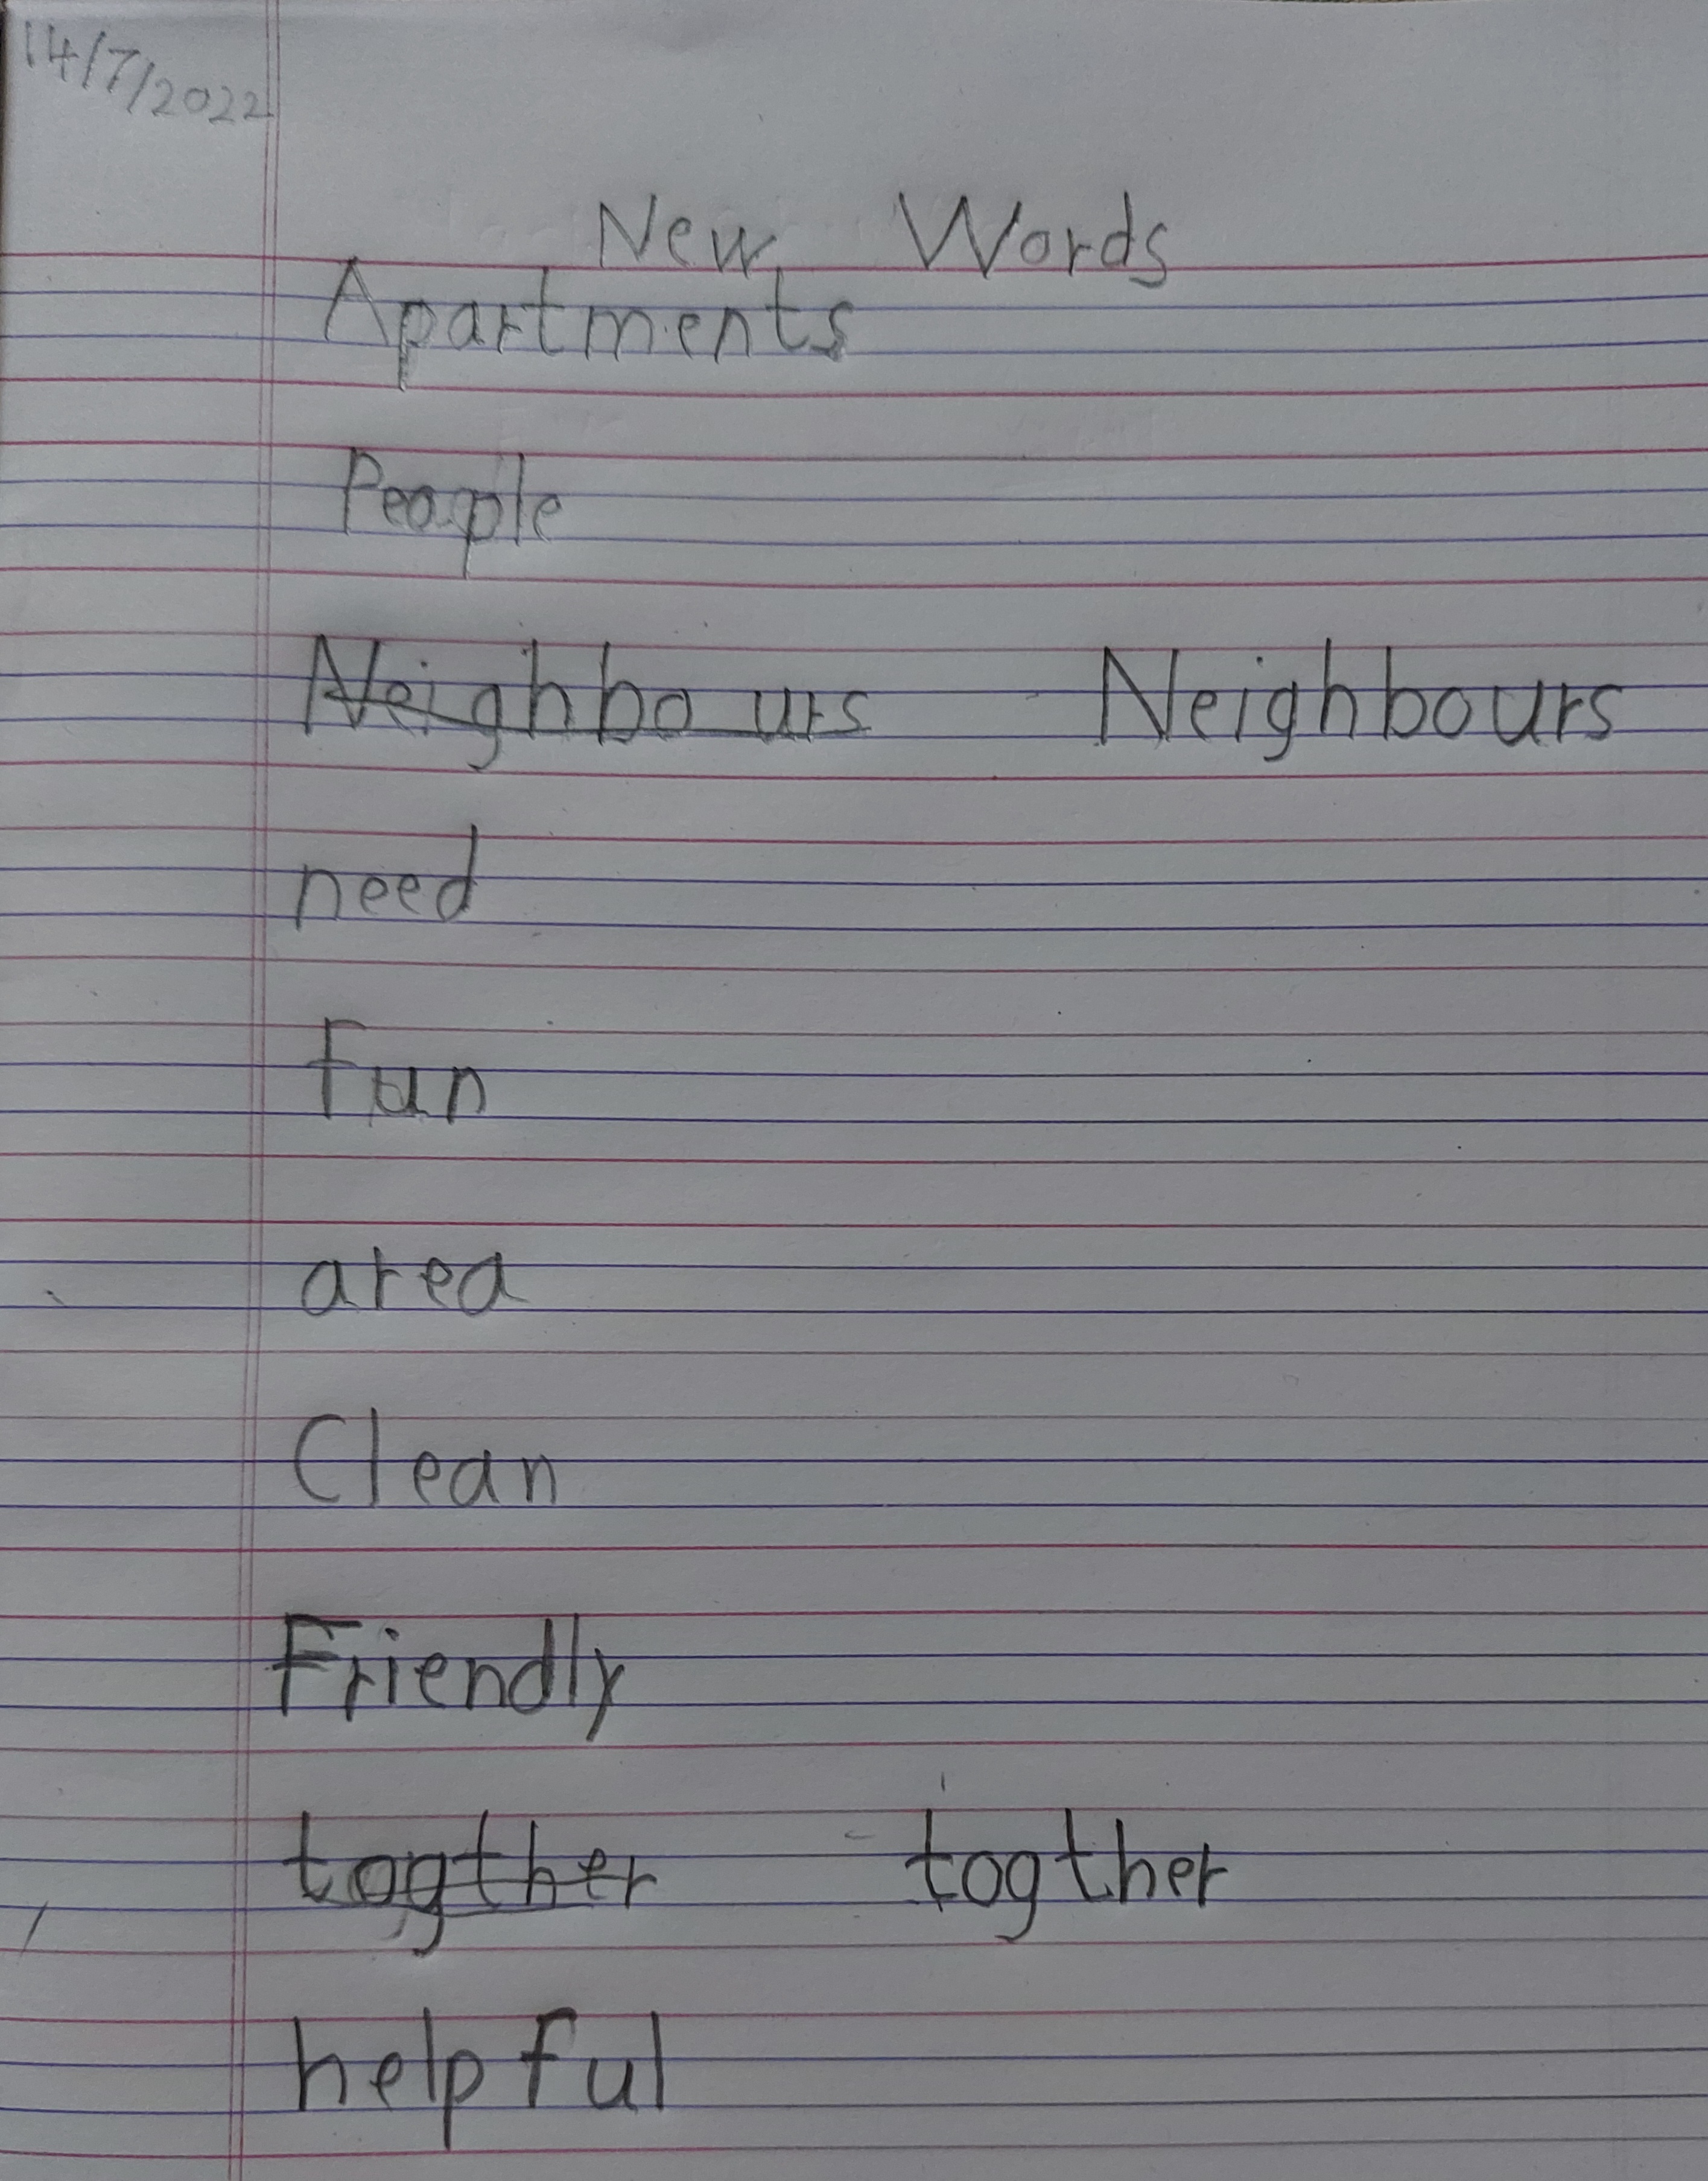 14/7/2022
New Words
Apartments
People
Neighbo urs Neighbours
need
fun
area
Clean
Friendly
togther togther
helpful